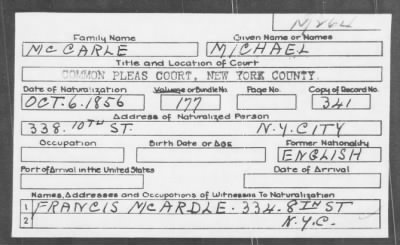 M 264
Family Name Given Name or Names
MCCARLE MICHAEL
Title and Location of Court
COMMON PLEAS COURT, NEW YORK COUNTY.
Date of Naturalization Volume or Bundle No. Page No. Copy of Record No.
OCT. 6. 1856 177 341
Address of Naturalized Person
338. 10TH ST. N.Y. CITY
Occupation Birth Date or Age Former Nationality
ENGLISH
Port of Arrival in the United States Date of Arrival
Names, Addresses and Occupations of Witnesses To Naturalization
1 FRANCIS MCARDLE. 334. 8TH ST
2 N.Y.C.